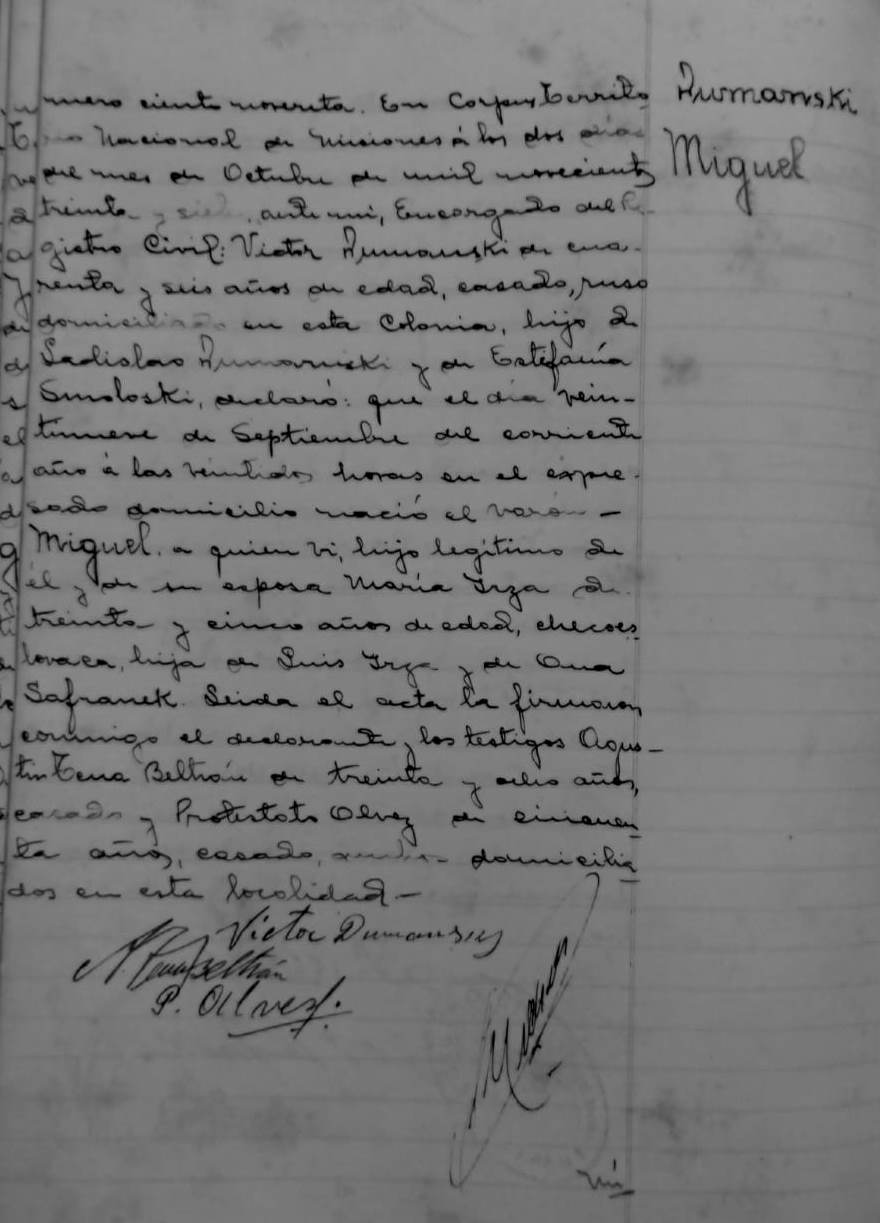 Número ciento noventa. En Corpus Territo
Nacional de Misiones á los dos días
del mes de Octubre de mil novecientos
treinta y siete, ante mí, Encargado del Re-
gistro Civil: Victor Dumanski de cua-
renta y seis años de edad, casado, ruso
domiciliado en esta Colonia, hijo de
Ladislao Dumanski y de Estefanía
Smoloski, declaró: que el día vein-
tinueve de Septiembre del corriente
año á las veintidos horas en el expre-
sado domicilio nació el varón —
Miguel. a quien vi, hijo legítimo de
él y de su esposa María Irza de
treinta y cinco años de edad, checoes
lovaca, hija de Luis Irza y de Ana
Safranek. Leida el acta la firmaron
conmigo el declarante y los testigos Agus-
tin Tena Beltrán de treinta y ocho años,
casado y Protestato Olvez de cincuen
ta años, casado, domicilia
dos en esta localidad —
Dumanski
Miguel
Victor Dumanski
A. Tena Beltrán
P. Olvez.